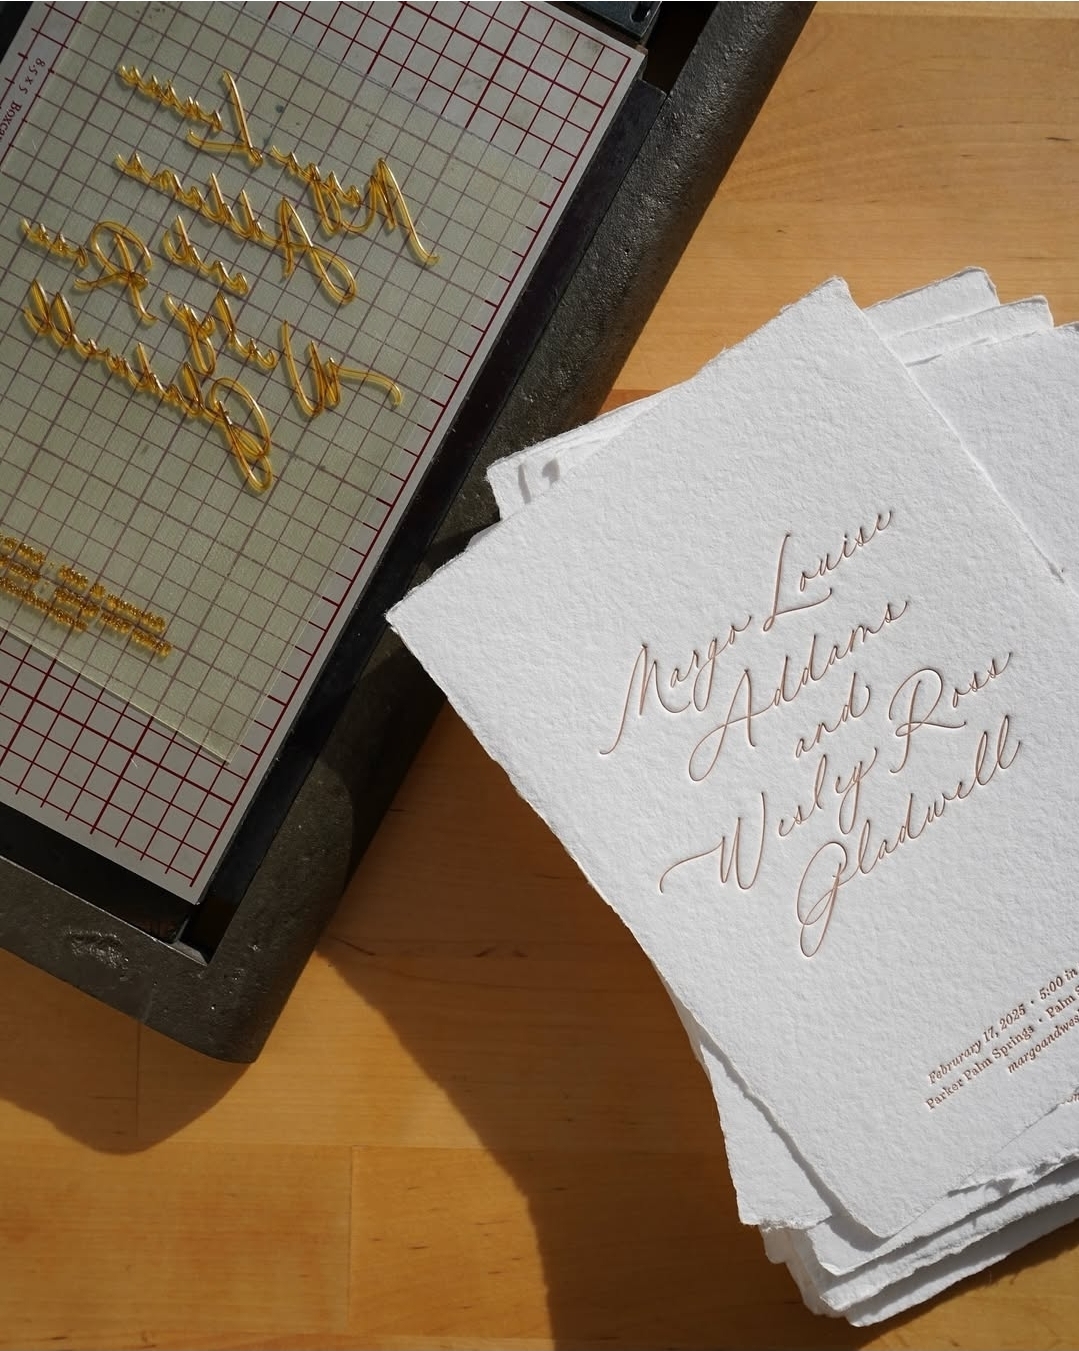 8.5x5 Boxca
Margo Louise
Addams
and
Wesley Ross
Gladwell
Februrary 17, 2025 • 5:00 in
Parker Palm Springs • Palm S
margoandwes